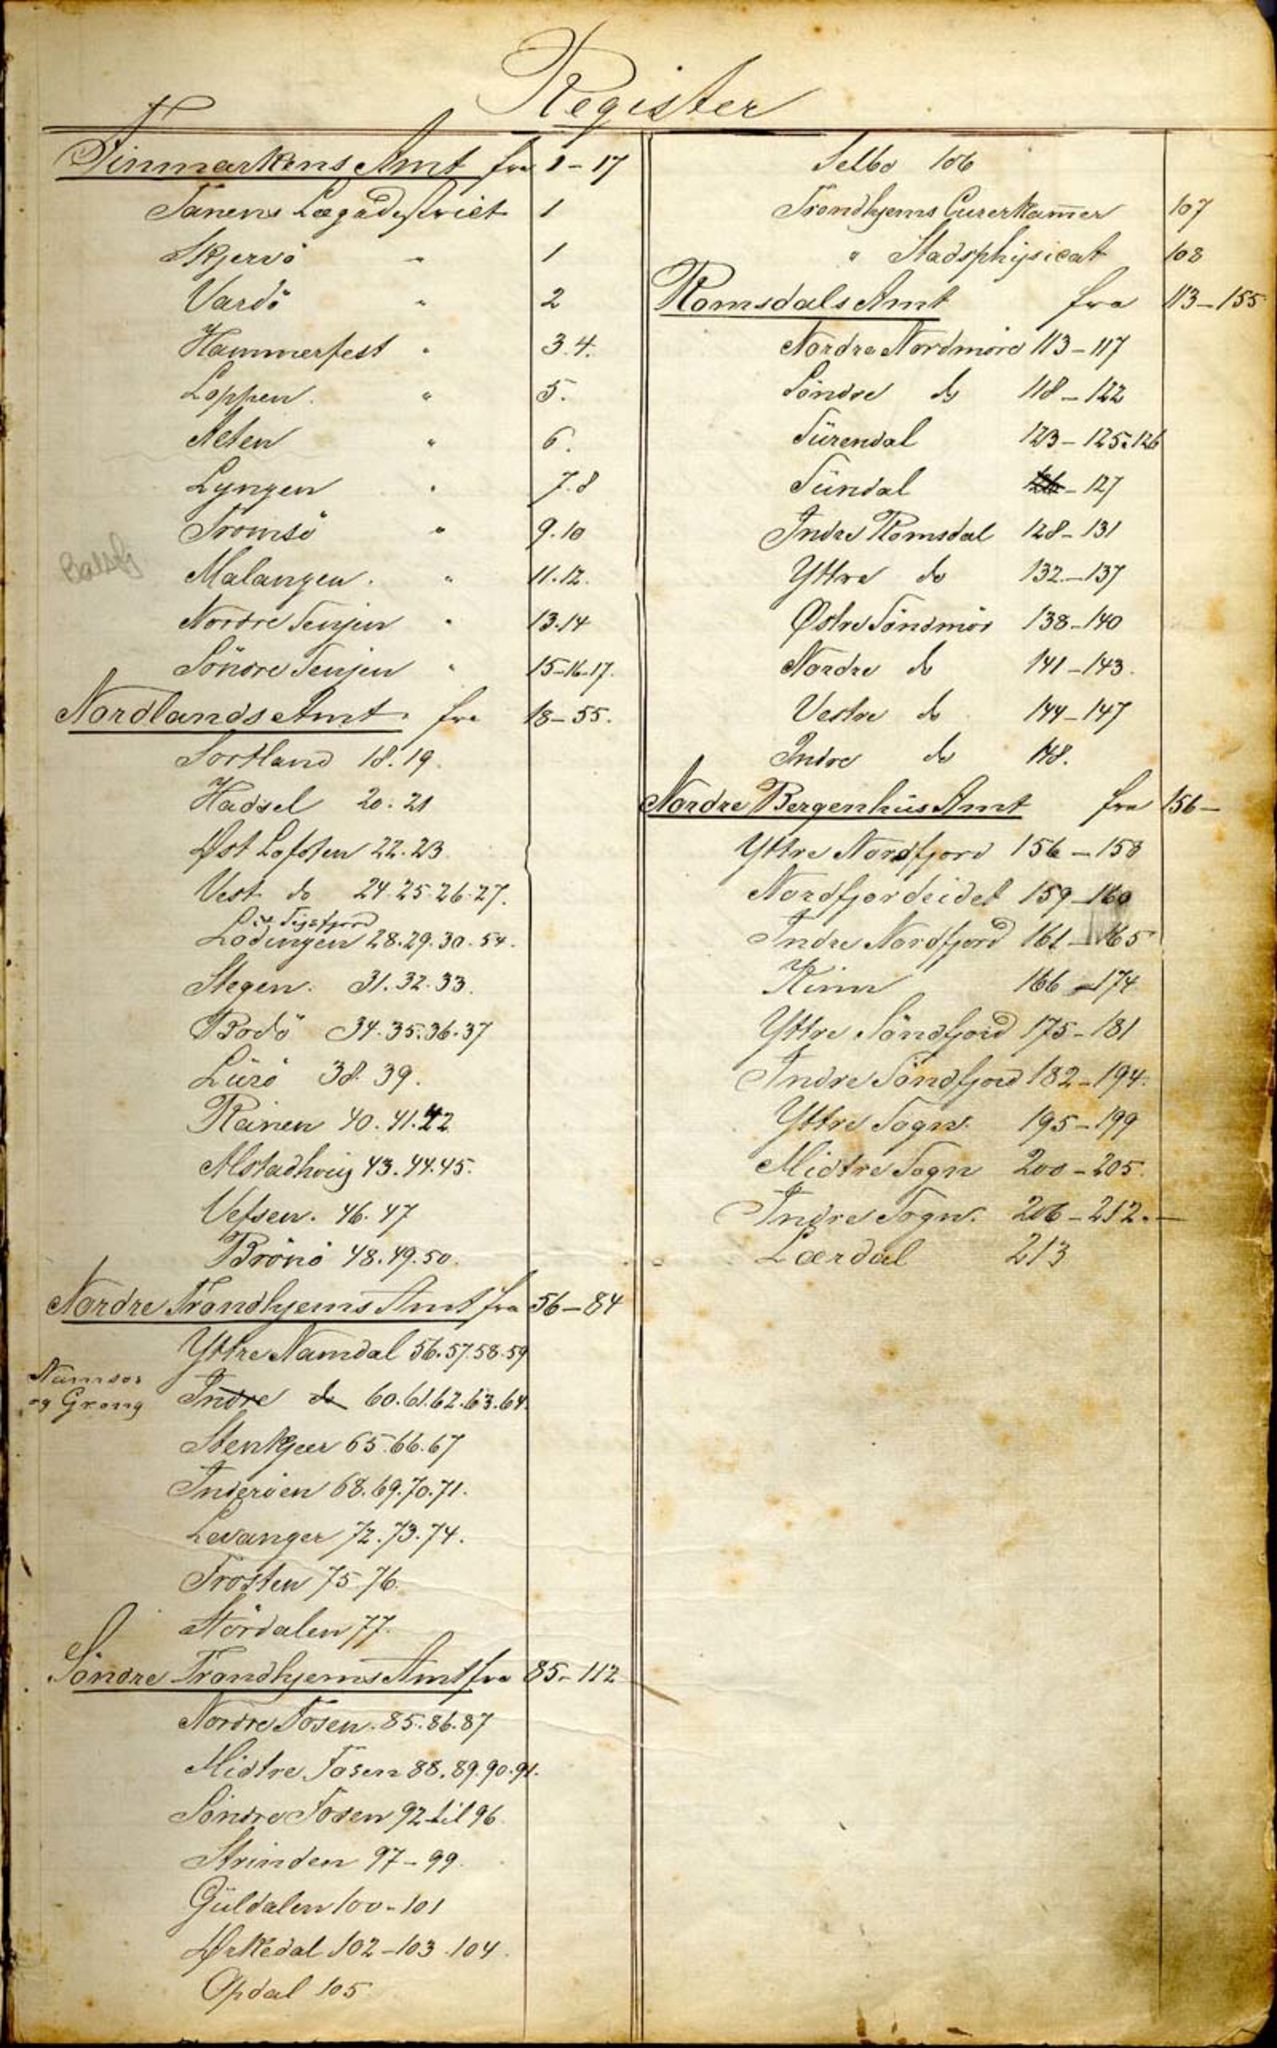 Register
Finmarkens Amt fra 1-17
Tanens Lægedistrict 1
Skjervö " 1
Vardö " 2
Hammerfest " 3.4.
Loppen. " 5.
Alten " 6.
Lyngen " 7.8
Tromsö " 9.10
Balsfj
Malangen. " 11.12.
Nordre Senjen " 13.14
Söndre Senjen " 15-16-17.
Nordlands Amt. fra 18-55.
Sortland 18.19.
Hadsel 20.21
Øst Lofoten 22.23.
Vest do 24.25.26.27.
Tysfjord
Lödingen 28.29.30.54.
Stegen. 31.32.33.
Bodö 34.35.36.37
Lürö 38.39.
Ranen 40.41.42
Alstadhoug 43.44.45.
Vefsen. 46.47
Brönö 48.49.50.
Nordre Trondhjems Amt fra 56-84
Yttre Namdal 56.57.58.59
Namsos
og Grong
Indre do 60.61.62.63.64.
Stenkjær 65.66.67
Inderöen 68.69.70.71.
Levanger 72.73.74.
Frosten 75.76.
Stördalen 77.
Söndre Trondhjems Amt fra 85-112
Nordre Fosen. 85.86.87
Midtre Fosen 88.89.90.91.
Söndre Fosen 92 til 96.
Strinden 97-99.
Güldalen 100-101
Ørkedal 102-103.104.
Opdal 105
Selbo 106
Trondhjems Curerkam̄er 107
" Stadsphysicat 108
Romsdals Amt fra 113-155
Nordre Nordmöre 113-117
Söndre do 118-122
Sürendal 123-125.126
Sündal 126-127
Indre Romsdal 128-131
Yttre do 132-137
Østre Söndmör 138-140
Nordre do 141-143.
Vestre do 144-147
Indre do 148.
Nordre Bergenhüs Amt fra 156-
Yttre Nordfjord 156-158
Nordfjordeidet 159-160
Indre Nordfjord 161-165
Kinn 166-174
Yttre Söndfjord 175-181
Indre Söndfjord 182-194.
Yttre Sogn. 195-199
Midtre Sogn 200-205.
Indre Sogn. 206-212.-
Lærdal 213